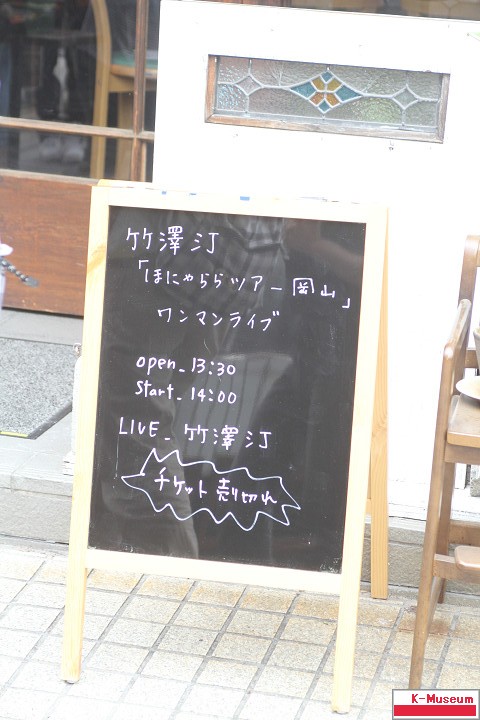 竹澤汀
「ほにゃららツアー岡山」
ワンマンライブ
open_13:30
start_14:00
LIVE_竹澤汀
チケット売切れ
K-Museum